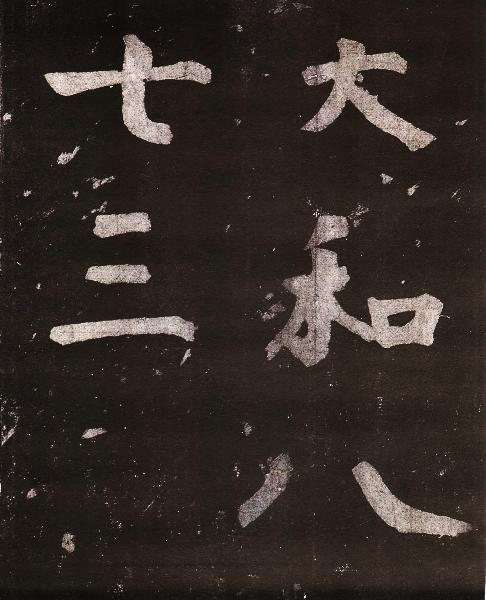 大和八
七三